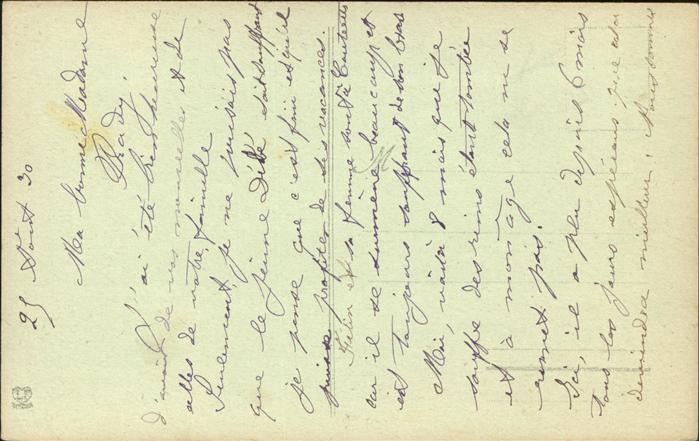 25 Août 30
Ma bonne Madame
Prady,
J'ai été bien heureuse
d'avoir de vos nouvelles et de
celles de votre famille
Seulement je ne pensais pas
que le jeune Dédé était souffrant
je pense que c'est fini et qu'il
puisse profiter de ses vacances.
Félix et sa femme sont à
car il se surmène beaucoup et
est toujours souffrant de son bras
Moi, voilà 8 mois que je
souffre des reins étant tombée
et à mon âge cela ne se
remet pas.
Ici, il a plu depuis 6 mois
tous les jours espérons que cela
deviendra meilleur, Nous sommes